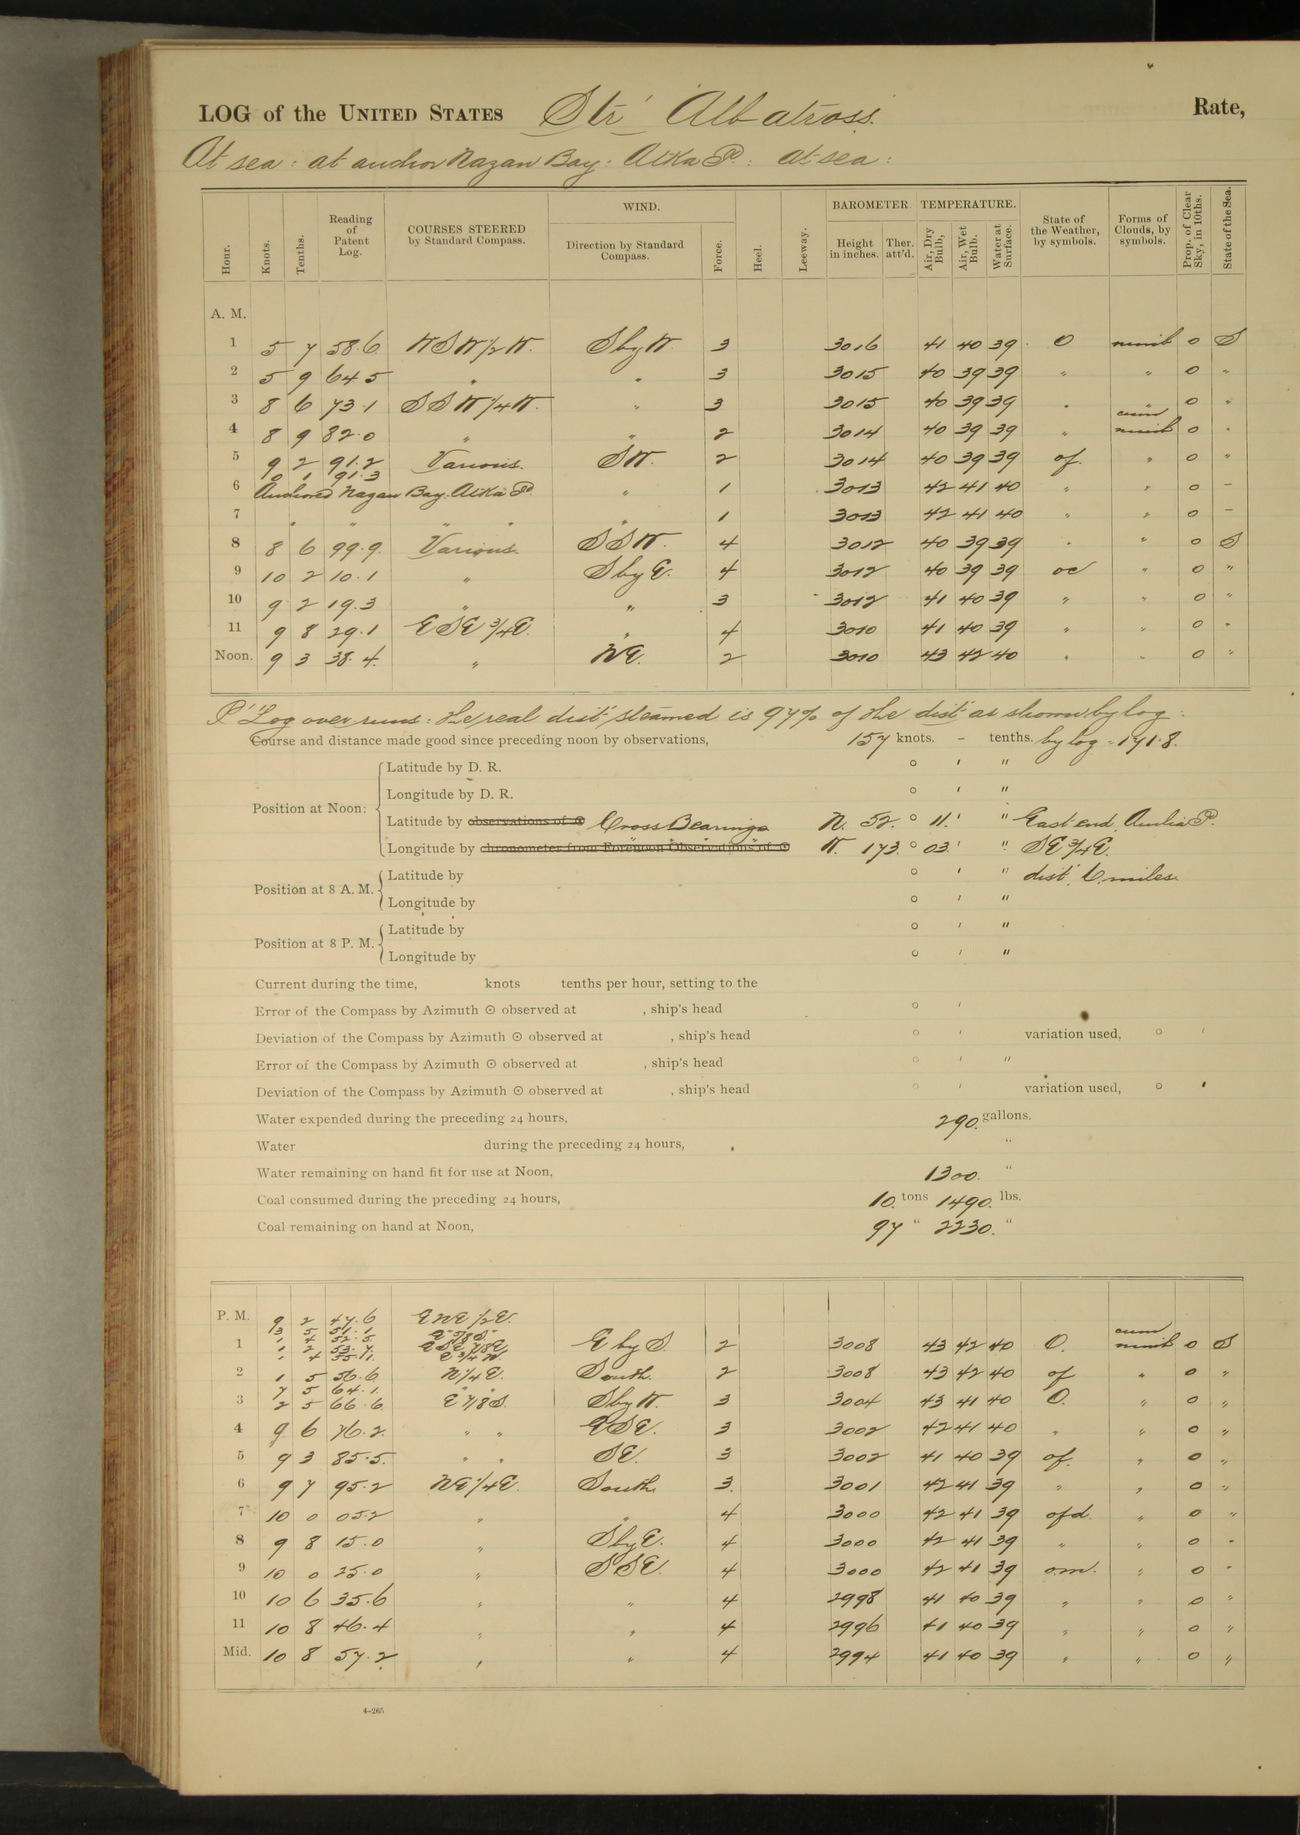 LOG of the UNITED STATES Str. Albatross. Rate,
At sea : at anchor Nazan Bay : Atka Id. : at sea :
Hour. Knots. Tenths. Reading of Patent Log. COURSES STEERED by Standard Compass. WIND. Direction by Standard Compass. Force. Heel. Leeway. BAROMETER. Height in inches. Ther. att'd. TEMPERATURE. Air, Dry Bulb, Air, Wet Bulb. Water at Surface. State of the Weather, by symbols. Forms of Clouds, by symbols. Prop. of Clear Sky, in 10ths. State of the Sea.
A. M.
1 5 7 58.6 WSW 1/2 W. S by W. 3 3016 41 40 39 O nimb 0 S
2 5 9 64 5 " " 3 3015 40 39 39 " " 0 "
3 8 6 73.1 SSW 1/4 W. " 3 3015 40 39 39 " " 0 "
4 8 9 82.0 " " 2 3014 40 39 39 " cum nimb 0 "
5 9 2 91.2 Various. SW. 2 3014 40 39 39 of. " 0 "
10 1 91.3
6 Anchored Nazan Bay. Atka Id. " 1 3013 42 41 40 " " 0 –
7 " " " " " 1 3013 42 41 40 " " 0 –
8 8 6 99.9. Various. SSW. 4 3012 40 39 39 " " 0 S
9 10 2 10.1 " S by E. 4 3012 40 39 39 oc " 0 "
10 9 2 19.3 " " 3 3012 41 40 39 " " 0 "
11 9 8 29.1 ESE 3/4 E. " 4 3010 41 40 39 " " 0 "
Noon. 9 3 38.4. " NE. 2 3010 43 42 40 " " 0 "
P' Log over runs : the real dist' steamed is 97% of the dist' as shown by log :
Course and distance made good since preceding noon by observations, 157 knots. – tenths. by log = 171.8.
Position at Noon: Latitude by D. R. ° ′ ″
Longitude by D. R. ° ′ ″
Latitude by observations of ☉ Cross Bearings N. 52. ° 11. ′ ″ East end Amlia Id.
Longitude by chronometer from Forenoon Observations of ☉ " " " W. 173. ° 03. ′ ″ SE 3/4 E.
Position at 8 A. M. Latitude by ° ′ ″ dist. 6 miles.
Longitude by ° ′ ″
Position at 8 P. M. Latitude by ° ′ ″
Longitude by ° ′ ″
Current during the time, knots tenths per hour, setting to the
Error of the Compass by Azimuth ☉ observed at , ship's head ° ′
Deviation of the Compass by Azimuth ☉ observed at , ship's head ° ′ variation used, ° ′
Error of the Compass by Azimuth ☉ observed at , ship's head ° ′ ″
Deviation of the Compass by Azimuth ☉ observed at , ship's head ° ′ variation used, ° ′
Water expended during the preceding 24 hours, 290. gallons.
Water during the preceding 24 hours, "
Water remaining on hand fit for use at Noon, 1300. "
Coal consumed during the preceding 24 hours, 10. tons 1490. lbs.
Coal remaining on hand at Noon, 97 " 2230. "
P. M. 9 2 47.6 ENE 1/2 E.
3 5 51.1 E 5/8 S.
1 1 4 52.5. ESE 7/8 E. E by S. 2 3008 43 42 40 O. cum nimb 0 S
1 2 53.7 E 3/4 N.
1 4 55.1
2 1 5 56.6 N 1/4 E. South. 2 3008 43 42 40 of " 0 "
7 5 64.1 " "
3 2 5 66.6. E 7/8 S. S by W. 3 3004 43 41 40 O. " 0 "
4 9 6 76.2. " " ESE. 3 3002 42 41 40 " " 0 "
5 9 3 85.5. " " SE. 3 3002 41 40 39 of. " 0 "
6 9 7 95.2 NE 1/4 E. South. 3. 3001 42 41 39 " " 0 "
7 10 0 05.2 " " 4 3000 42 41 39 ofd. " 0 "
8 9 8 15.0 " S by E. 4 3000 42 41 39 " " 0 "
9 10 0 25.0 " SSE. 4 3000 42 41 39 om. " 0 "
10 10 6 35.6 " " 4 2998 41 40 39 " " 0 "
11 10 8 46.4 " " 4 2996 41 40 39 " " 0 "
Mid. 10 8 57.2 " " 4 2994 41 40 39 " " 0 "
4–265